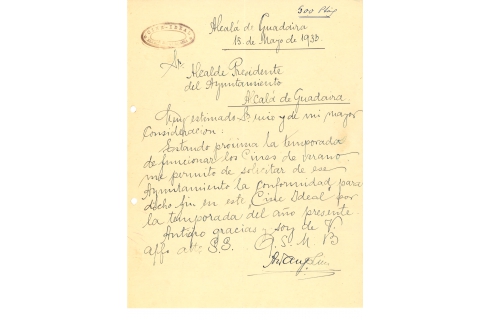 500 Ptas
Alcalá de Guadaira
15 de Mayo de 1933
Sr.
Alcalde Presidente
del Ayuntamiento
Alcalá de Guadaira
Muy estimado Sr. mio y de mi mayor
Consideración:
Estando proxima la temporada
de funcionar los Cines de Verano
me permito de solicitar de ese
Ayuntamiento la conformidad para
dicho fin en este Cine Ideal por
la temporada del año presente.
Antero gracias y soy de V.
affo. att. S.S. Q.S.M.B